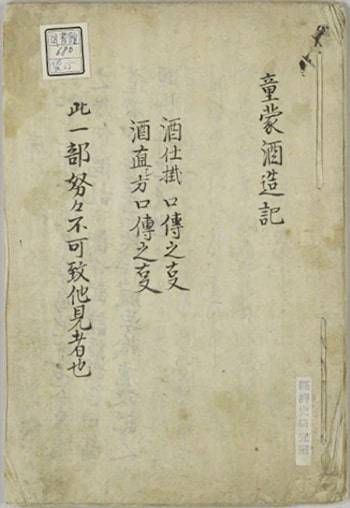 童蒙酒造記
酒仕掛口傳之叓
酒直シ方口傳之叓
此一部努々不可致他見者也
図書館
680